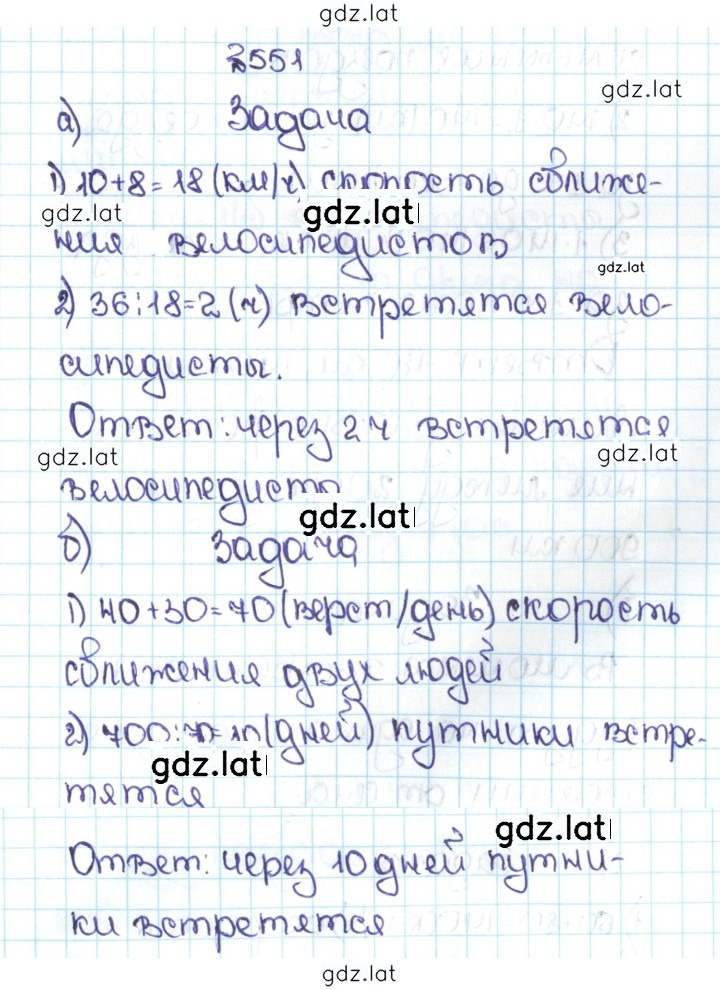 gdz.lat
№551
gdz.lat
а) Задача
1) 10+8=18 (км/ч) скорость сближе-
gdz.lat
gdz.lat
ния велосипедистов
gdz.lat
2) 36:18=2 (ч) встретятся вело-
сипедисты.
Ответ: через 2 ч встретятся
gdz.lat
gdz.lat
велосипедисты
gdz.lat
б) Задача
1) 40+30=70 (верст/день) скорость
сближения двух людей
2) 700:70=10 (дней) путники встре-
gdz.lat
тятся
gdz.lat
Ответ: через 10 дней путни-
ки встретятся
gdz.lat